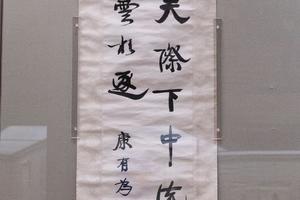 天際下中流
雲水逐
康有為